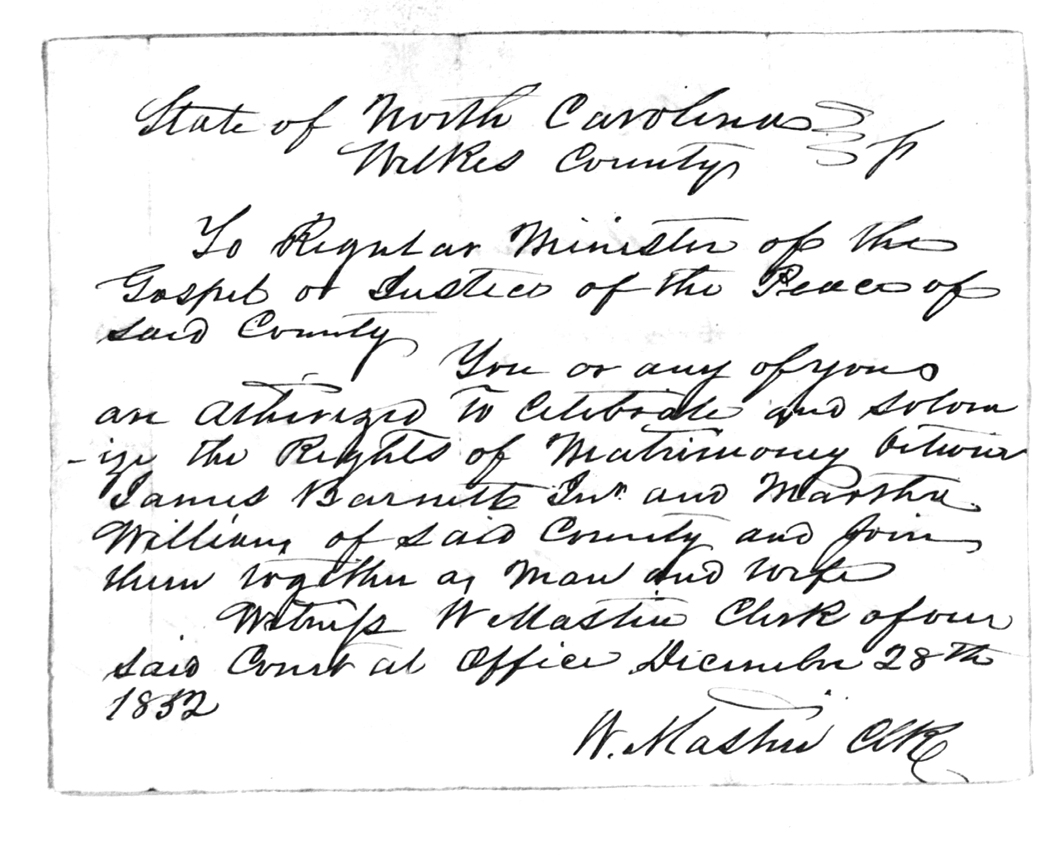 State of North Carolina
Wilkes County
To Regular Minister of the
Gospel or Justice of the Peace of
said County
You or any of you
are Atherized to Celebrate and Solom
-ize the Rights of Matrimoney betwier
James Barnett Jnr and Martha
Williams of said County and Join
them together as Man and Wife
Witness W Mastin Clerk of our
said Court at Office December 28th
1852
W. Mastin ClK